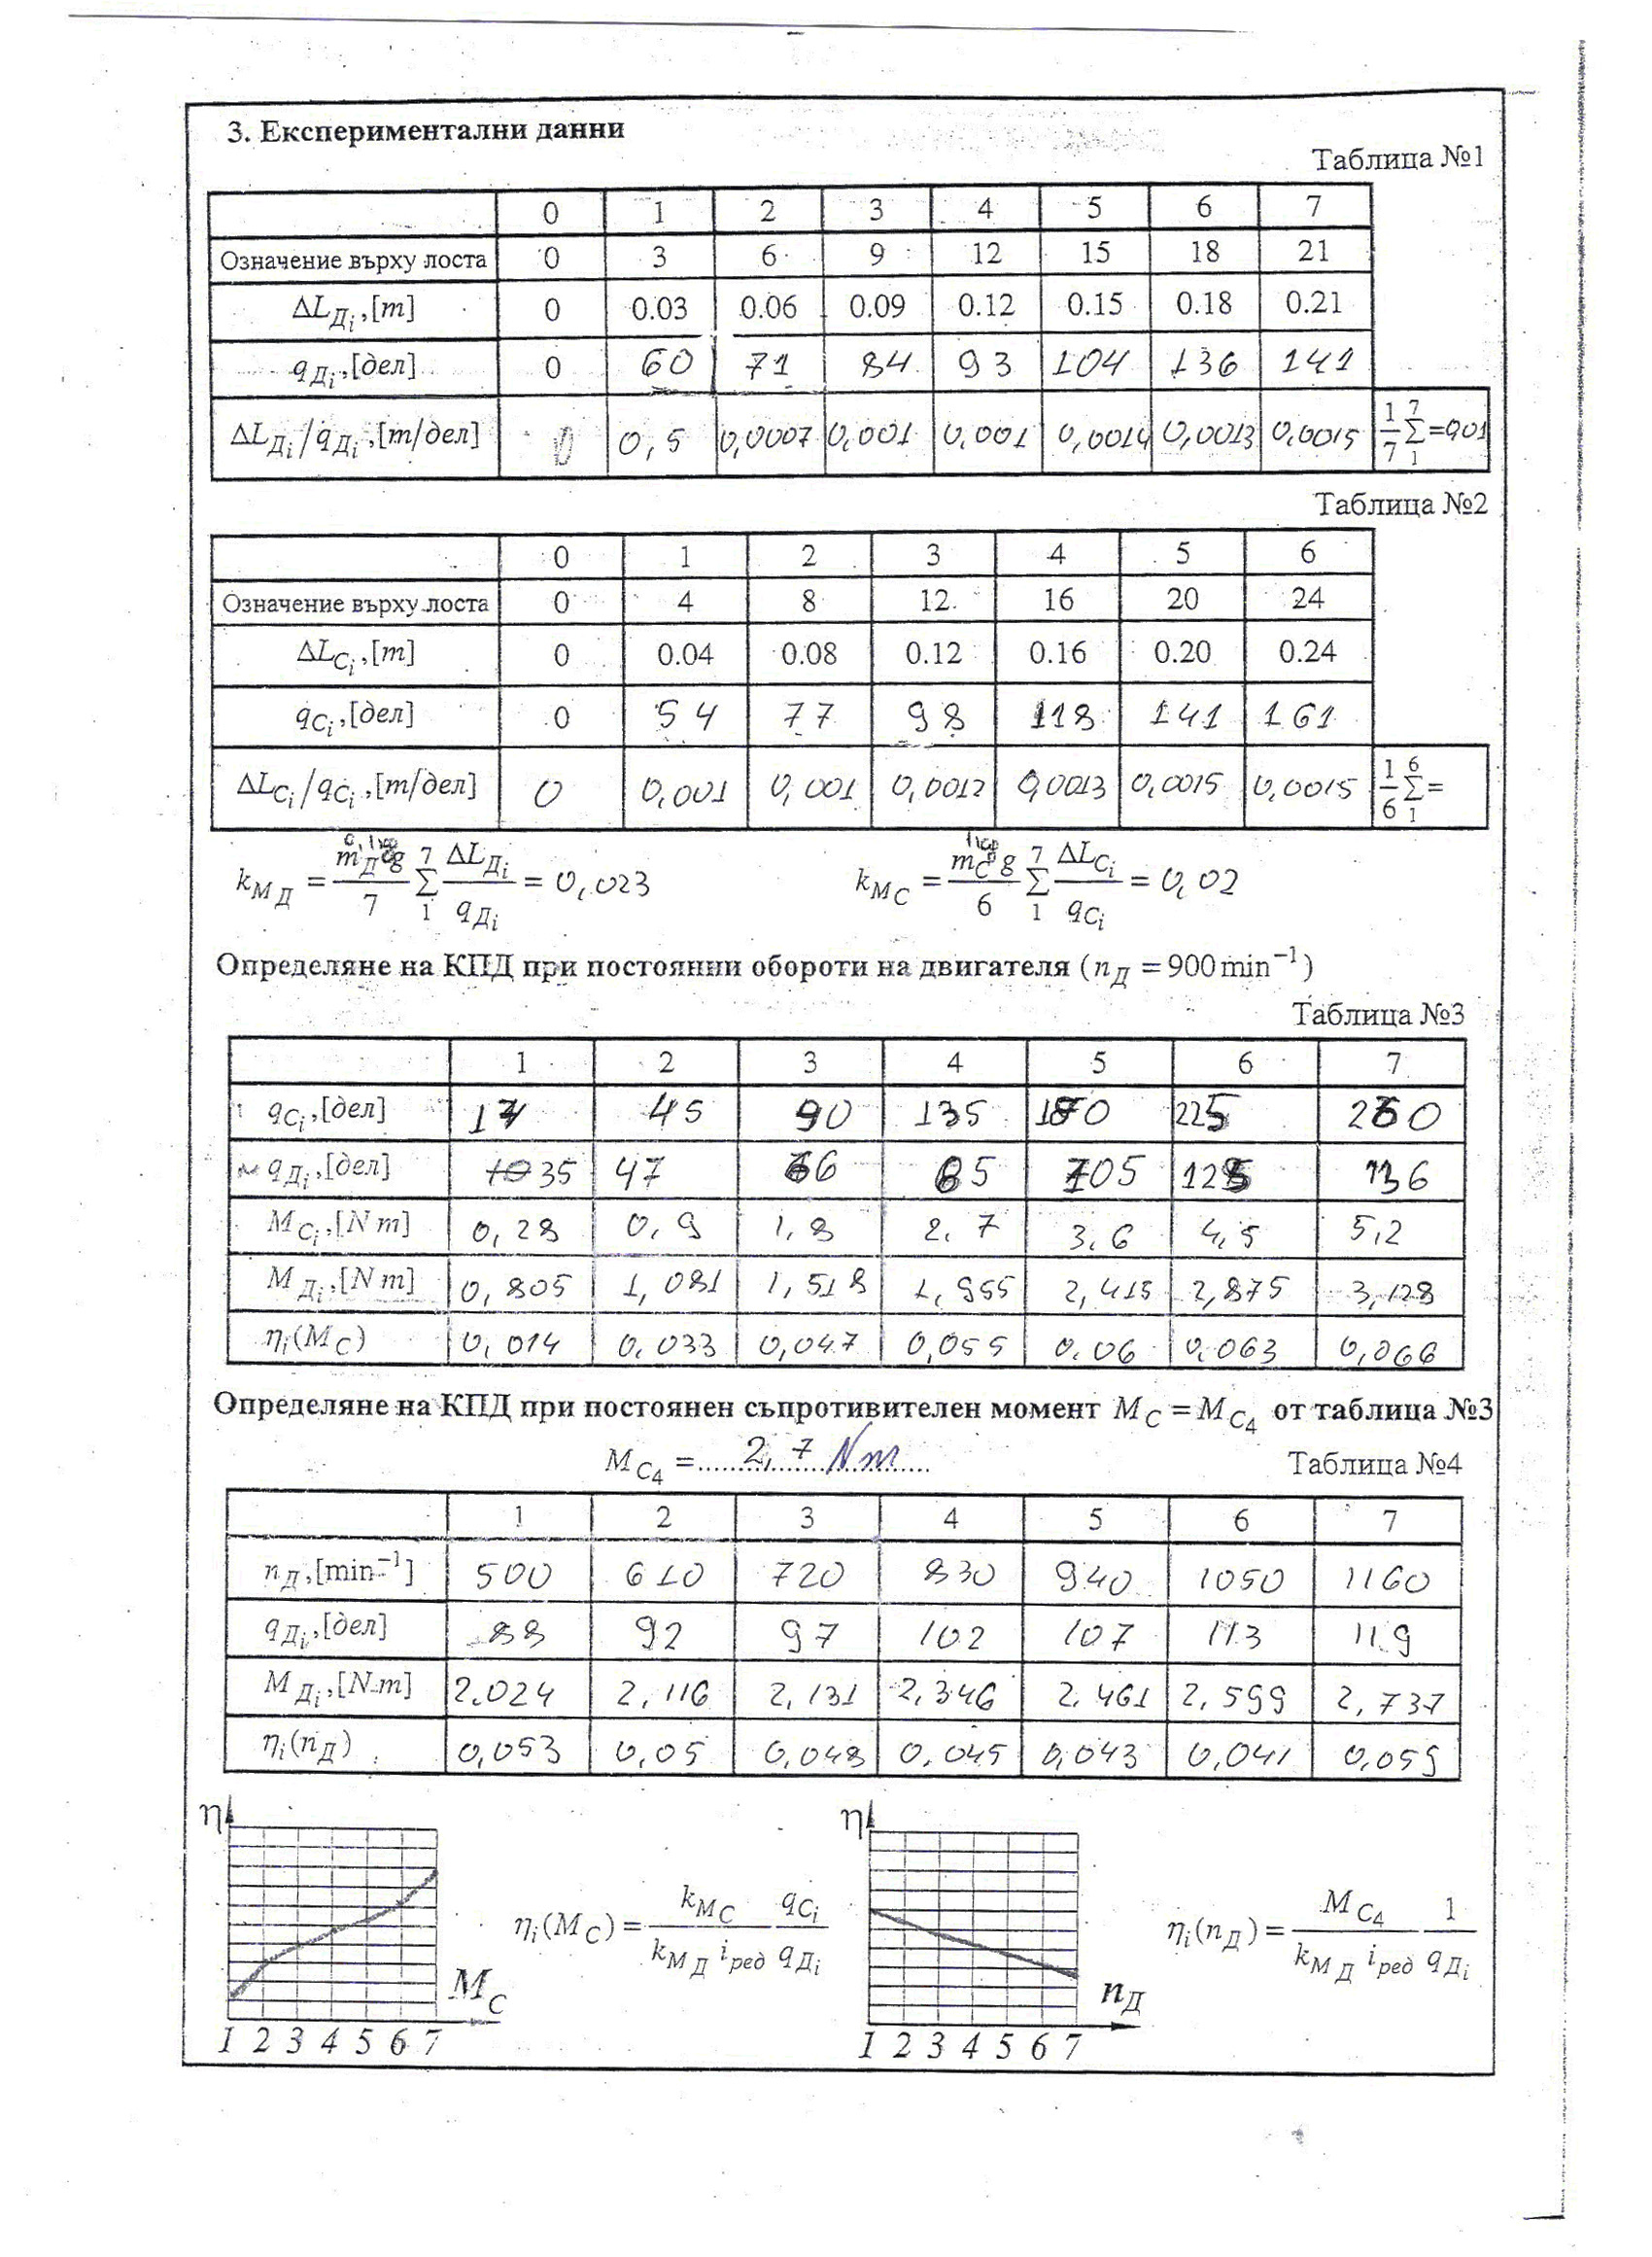 3. Експериментални данни
Таблица №1
0 1 2 3 4 5 6 7
Означение върху лоста 0 3 6 9 12 15 18 21
ΔL_Дi ,[m] 0 0.03 0.06 0.09 0.12 0.15 0.18 0.21
q_Дi ,[дел] 0 60 71 84 93 104 136 141
ΔL_Дi /q_Дi ,[m/дел] 0 0,5 0,0007 0,001 0,001 0,0014 0,0013 0,0015 1/7 Σ 7 1 =0,01
Таблица №2
0 1 2 3 4 5 6
Означение върху лоста 0 4 8 12 16 20 24
ΔL_Ci ,[m] 0 0.04 0.08 0.12 0.16 0.20 0.24
q_Ci ,[дел] 0 54 77 98 118 141 161
ΔL_Ci /q_Ci ,[m/дел] 0 0,001 0,001 0,0012 0,0013 0,0015 0,0015 1/6 Σ 6 1 =
k_МД = m_Д g/7 Σ 7 1 ΔL_Дi/q_Дi = 0,023 k_МС = m_C g/6 Σ 7 1 ΔL_Ci/q_Ci = 0,02
Определяне на КПД при постоянни обороти на двигателя (n_Д = 900 min⁻¹)
Таблица №3
1 2 3 4 5 6 7
q_Ci ,[дел] 14 45 90 135 180 225 260
q_Дi ,[дел] 35 47 66 85 105 125 136
M_Ci ,[N m] 0,28 0,9 1,8 2,7 3,6 4,5 5,2
M_Дi ,[N m] 0,805 1,081 1,518 1,955 2,415 2,875 3,128
η_i(M_C) 0,014 0,033 0,047 0,055 0,06 0,063 0,066
Определяне на КПД при постоянен съпротивителен момент M_C = M_C4 от таблица №3
M_C4 =......2,7 Nm......
Таблица №4
1 2 3 4 5 6 7
n_Д ,[min⁻¹] 500 610 720 830 940 1050 1160
q_Дi ,[дел] 88 92 97 102 107 113 119
M_Дi ,[N m] 2.024 2,116 2,131 2,346 2,461 2,599 2,737
η_i(n_Д) 0,053 0,05 0,048 0,045 0,043 0,041 0,059
η
η_i(M_C) = k_МС/(k_МД i_ред) q_Ci/q_Дi
M_C
1 2 3 4 5 6 7
η
η_i(n_Д) = M_C4/(k_МД i_ред) 1/q_Дi
n_Д
1 2 3 4 5 6 7